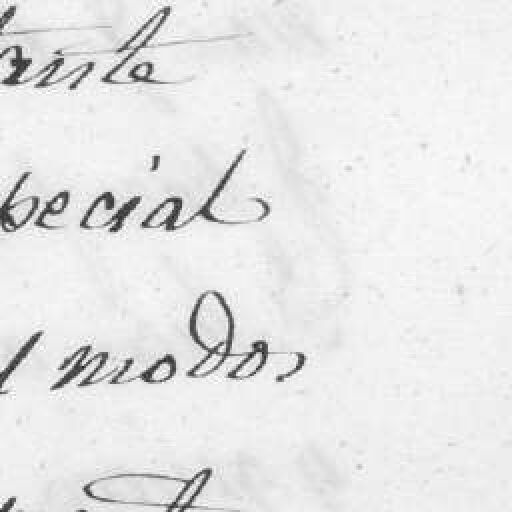 tante
pecial
l modo,